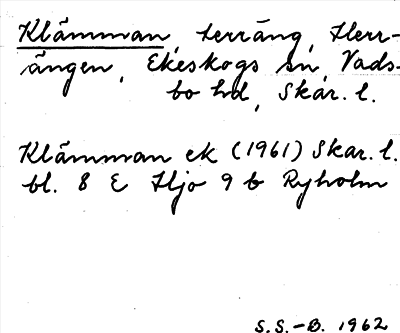 Klämman, terräng, Herr-
ängen, Ekeskogs sn, Vads-
bo hd, Skar. l.
Klämman ek (1961) Skar. l.
bl. 8 E Hjo 9 b Ryholm
S.S.-B. 1962